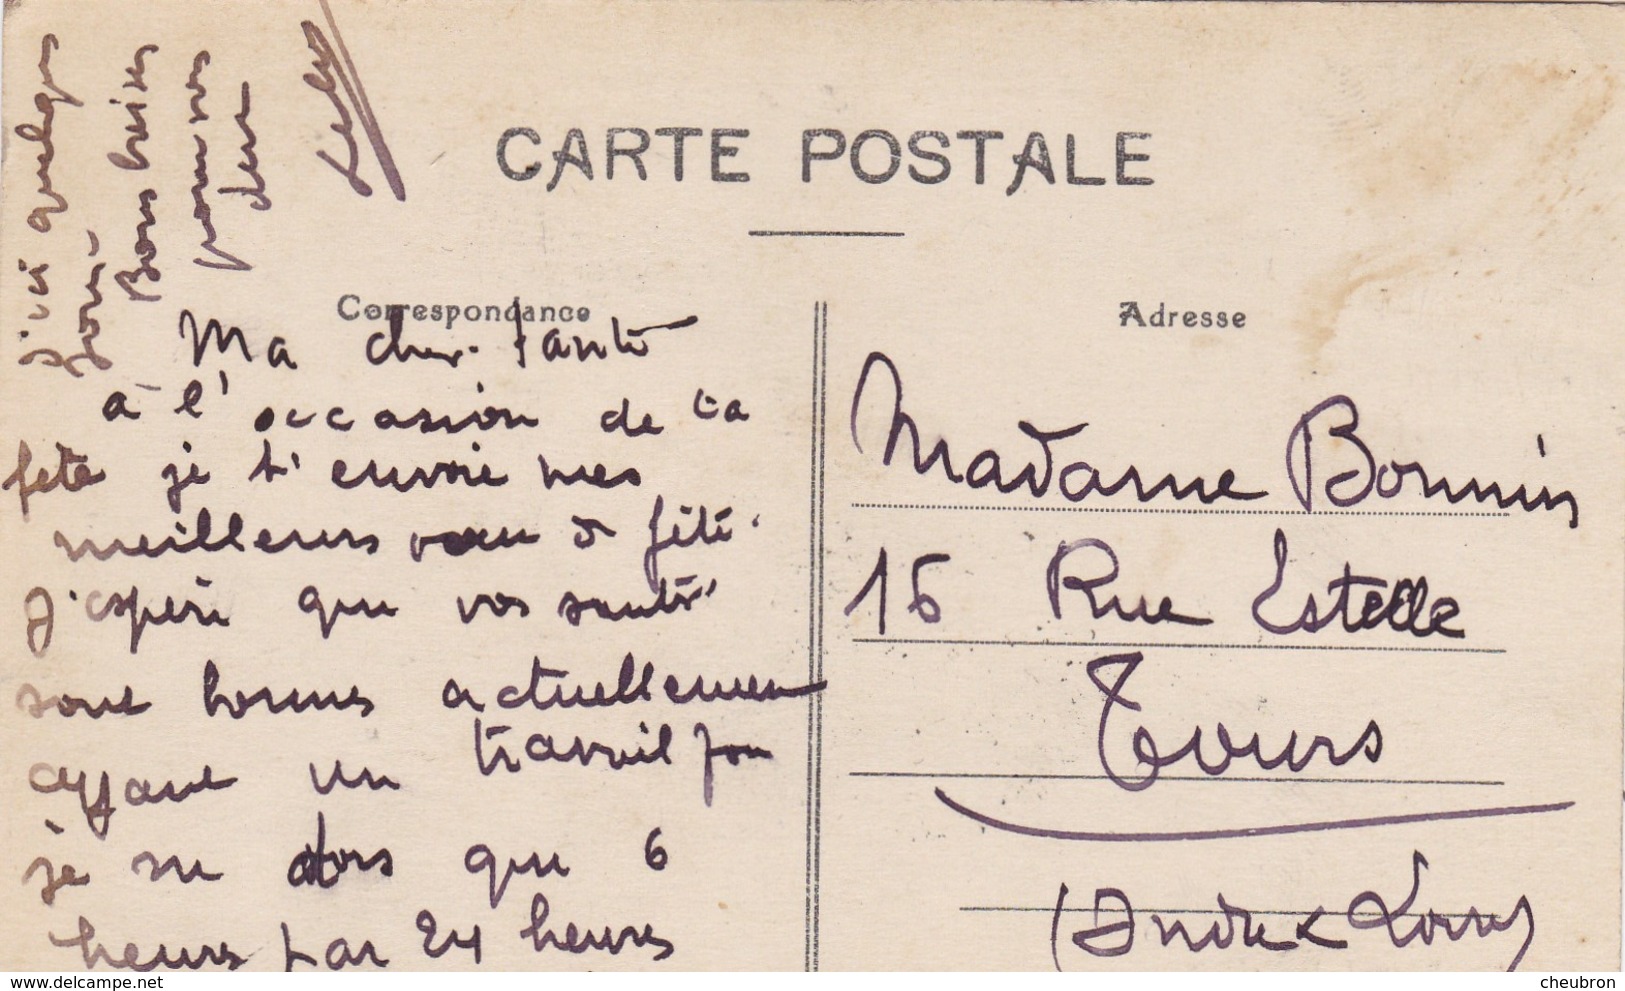 CARTE POSTALE
Correspondance
Ma cher tante
à l'occasion de ta
fete je t'envoie mes
meilleurs vœu de fête.
J'espère que vos santé
sont bonnes actuellemen
ayant un travail fou
je ne dors que 6
heures par 24 heures
d'ici quelques
jours.
Bons baisers
pour vous
deux
Adresse
Madame Bonnin
16 Rue Estelle
Tours
(Indre & Loire)
delcampe.net
cheubron